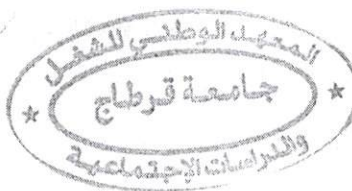 المعهد الوطني للشغل
جامعة قرطاج
والدراسات الإجتماعية